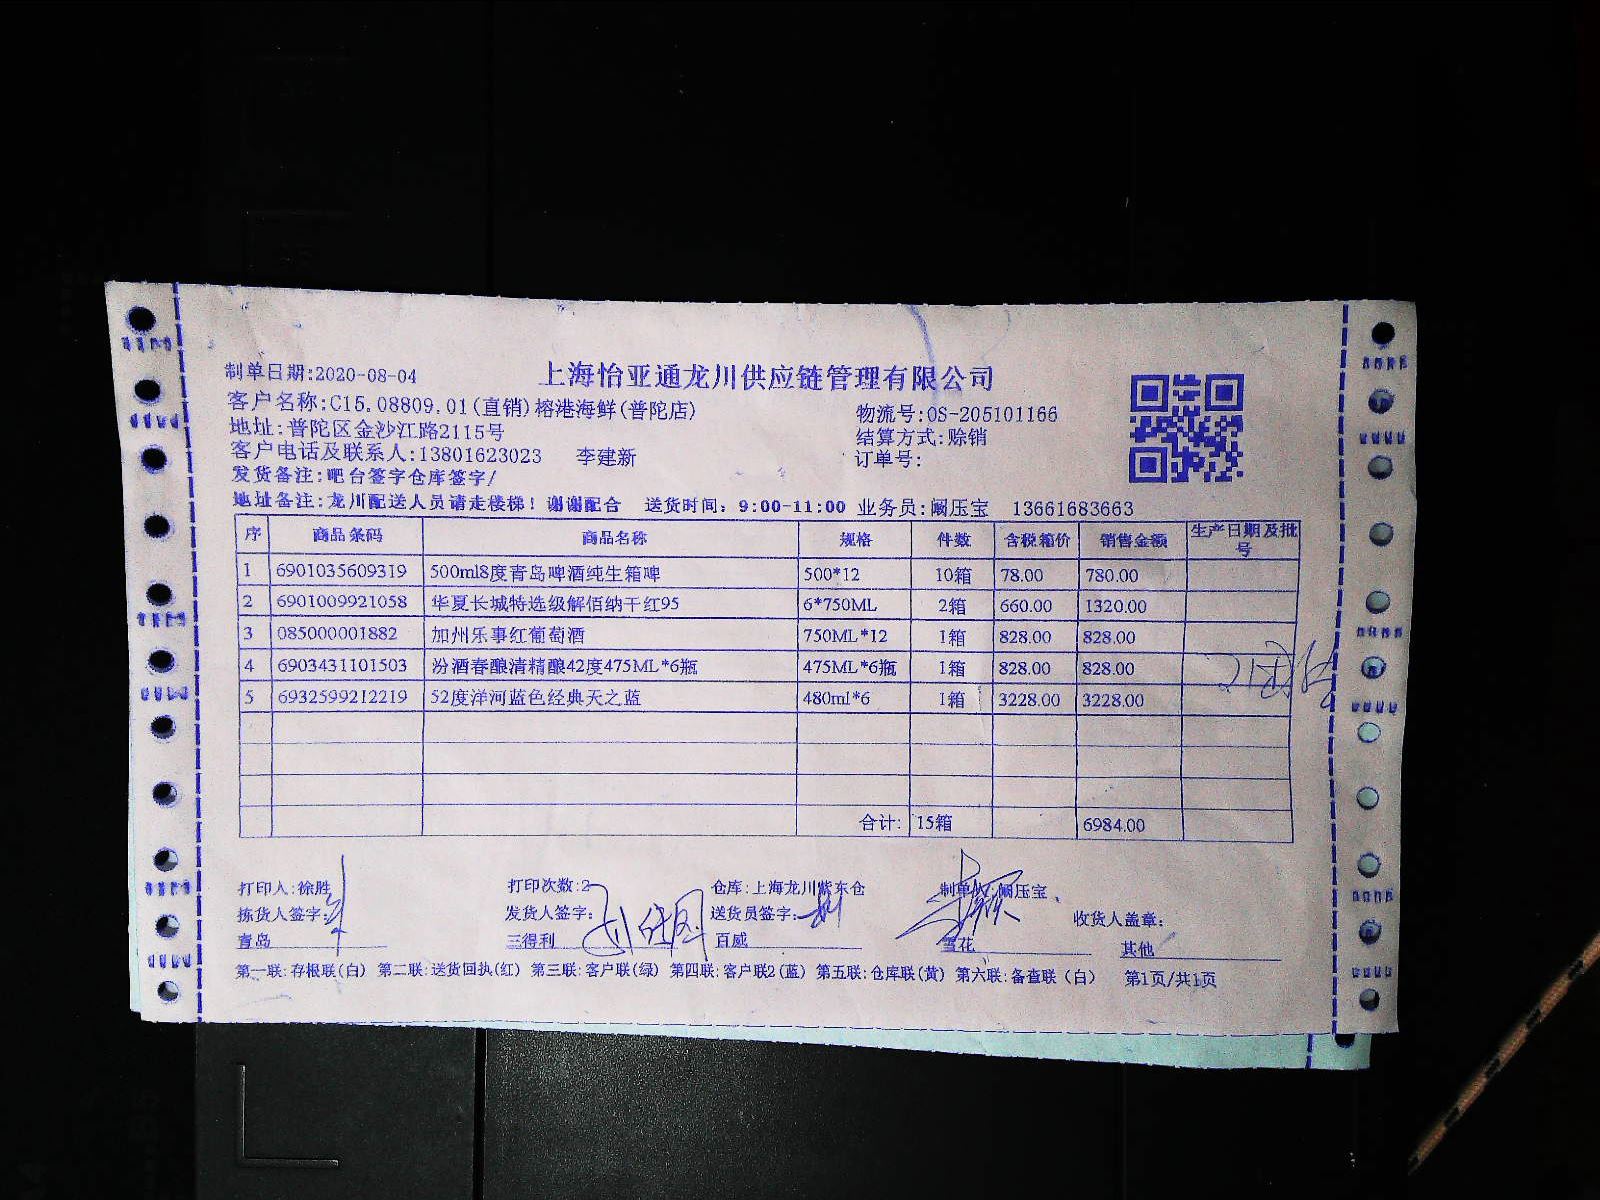 上海怡亚通龙川供应链管理有限公司
制单日期:2020-08-04
客户名称:C15.08809.01(直销)榕港海鲜(普陀店) 物流号:OS-205101166
地址:普陀区金沙江路2115号 结算方式:赊销
客户电话及联系人:13801623023 李建新 订单号:
发货备注:吧台签字仓库签字/
地址备注:龙川配送人员请走楼梯！谢谢配合 送货时间：9:00-11:00 业务员:阚压宝 13661683663
序 商品条码 商品名称 规格 件数 含税箱价 销售金额 生产日期及批号
1 6901035609319 500ml8度青岛啤酒纯生箱啤 500*12 10箱 78.00 780.00
2 6901009921058 华夏长城特选级解佰纳干红95 6*750ML 2箱 660.00 1320.00
3 085000001882 加州乐事红葡萄酒 750ML*12 1箱 828.00 828.00
4 6903431101503 汾酒春酿清精酿42度475ML*6瓶 475ML*6瓶 1箱 828.00 828.00
5 6932599212219 52度洋河蓝色经典天之蓝 480ml*6 1箱 3228.00 3228.00
合计: 15箱 6984.00
打印人:徐胜 打印次数:2 仓库:上海龙川紫东仓 制单人:阚压宝
拣货人签字: 发货人签字: 送货员签字: 收货人盖章:
青岛 三得利 百威 雪花 其他
第一联:存根联(白) 第二联:送货回执(红) 第三联:客户联(绿) 第四联:客户联2(蓝) 第五联:仓库联(黄) 第六联:备查联(白) 第1页/共1页